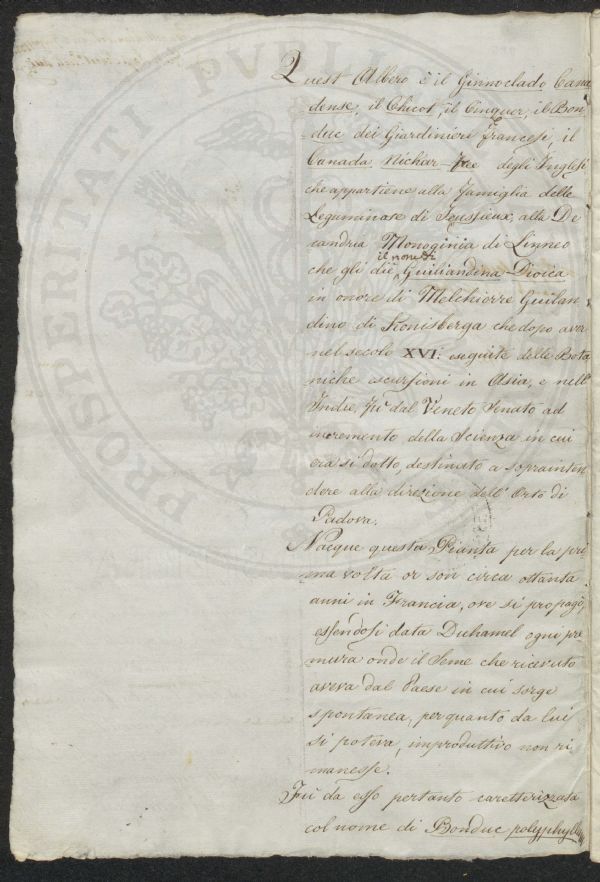 Quest Albero è il Ginnoclado Cana
dense, il Chicot, il Cniquer, il Bon,
=duc dei Giardinieri Francesi, il
Canada Nichar Tree degli Inglesi
che appartiene alla Famiglia delle
Leguminose di Jeussieux, alla De
candria Monoginia di Linneo
il nome di
che gli diè Guiliandina Dioica
in onore di Melchiorre Guilan
dino di Konisberga che dopo aver
nel secolo XVI: eseguite delle Bota
niche escursioni in Asia, e nell'
Indie, fù dal Veneto Senato ad
incremento della Scienza in cui
era sì dotto, destinato a soprainten
dere alla direzione dell'Orto di
Padova.
Nacque questa Pianta per la pri
ma volta or son circa ottanta
anni in Francia, ove si propagò,
essendosi data Duhamel ogni pre
mura onde il Seme che ricevuto
aveva dal Paese in cui sorge
spontanea, per quanto da lui
si poteva, improduttivo non ri
manesse.
Fù da esso pertanto caratterizzata
col nome di Bonduc polyphyllum
PROSPERITATI PVBLIC